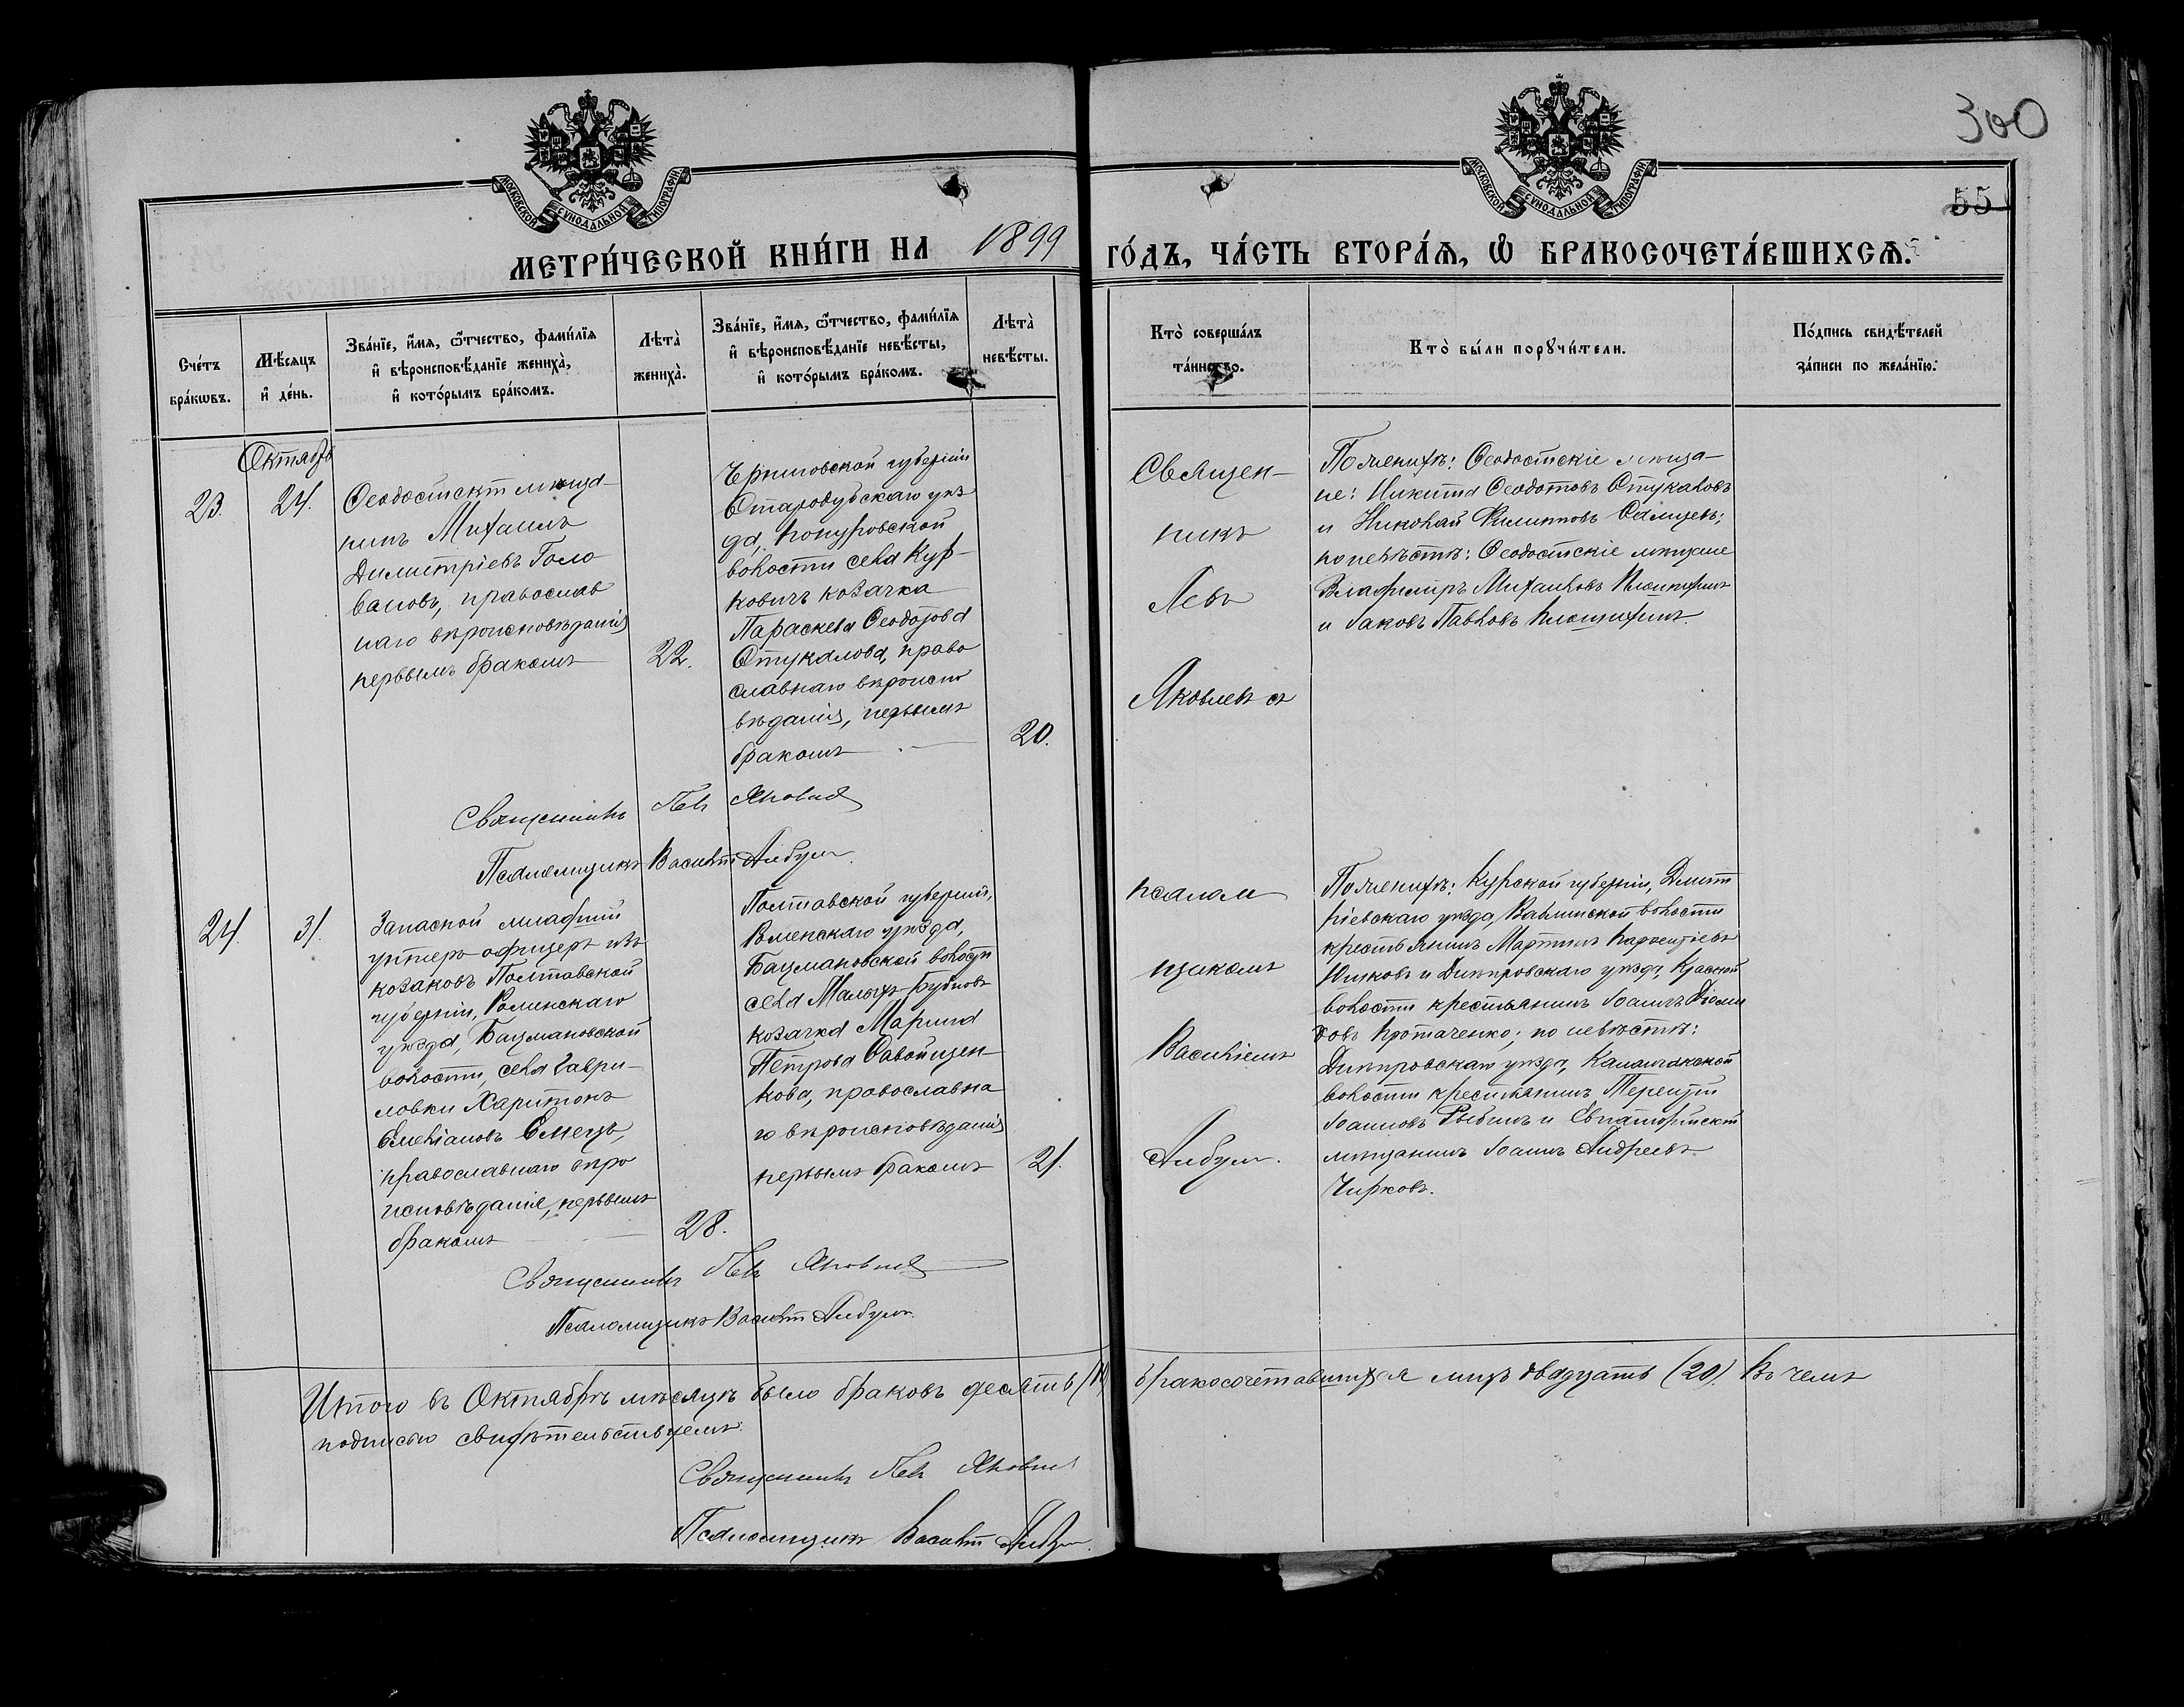 300
55
МОСКОВСКОЙ СѴНОДАЛЬНОЙ ТИПОГРАФІИ
МОСКОВСКОЙ СѴНОДАЛЬНОЙ ТИПОГРАФІИ
МЕТРИ́ЧЕСКОЙ КНИ́ГИ НА 1899
ГО́ДЪ, ЧА́СТЬ ВТОРА́Ѧ, Ѡ҆ БРАКОСОЧЕТА́ВШИХСѦ.
Сче́тъ бра́кѡвъ.
Мѣ́сяцъ и҆ де́нь.
Зва́нїе, и҆́мя, ѻ҆́тчество, фами́лїя и҆ вѣроисповѣ́данїе жениха̀, и҆ кото́рымъ бра́комъ.
Лѣта̀ жениха̀.
Зва́нїе, и҆́мя, ѻ҆́тчество, фами́лїя и҆ вѣроисповѣ́данїе невѣ́сты, и҆ кото́рымъ бра́комъ.
Лѣта̀ невѣ́сты.
Кто̀ соверша́лъ та́инство.
Кто̀ бы́ли порꙋчи́тели.
По́дпись свидѣ́телей за́писи по жела́нїю.
Октябрь
23.
24.
Ѳеодосійскій мѣща-
нинъ Михаилъ
Димитріевъ Голо
вановъ, православ
наго вѣроисповѣданія
первымъ бракомъ
22.
Черниговской губерніи
Стародубскаго уѣз
да,
волости села Кур-
ковичъ козачка
Параскева Ѳеодотова
Стукалова, право
славнаго вѣроиспо
вѣданія, первымъ
бракомъ
20.
Священ-
никъ
Левъ
Яковлевъ
По женихѣ: Ѳеодосійскіе мѣща-
не: Никита Ѳеодотовъ Стукаловъ
и Николай Филипповъ
по невѣстѣ: Ѳеодосійскіе мѣщане
Владиміръ Михаиловъ
и Іаковъ Павловъ
Священникъ Левъ Яковлевъ
Псаломщикъ Василій
24.
31.
Запасной младшій
унтеръ офицеръ изъ
козаковъ Полтавской
губерніи, Роменскаго
уѣзда, Бацмановской
волости, села Гаври-
ловки Харитонъ
Емеліановъ Емецъ,
православнаго вѣро
исповѣданія, первымъ
бракомъ
28.
Полтавской губерніи,
Роменскаго уѣзда,
Бацмановской волости
села Малыхъ-Бубновъ
козачка Марина
Петрова Савойщен
кова, православна
го вѣроисповѣданія
первымъ бракомъ
21.
псалом
щикомъ
Василіемъ
По женихѣ: Курской губерніи, Дмит
ріевскаго уѣзда, волости
крестьянинъ Мартинъ
и Днѣпровскаго уѣзда, Красной
волости крестьянинъ Іоаннъ
Протаченко; по невѣстѣ:
Днѣпровскаго уѣзда, Каланчакской
волости крестьянинъ Терентій
Іоанновъ Рыбинъ и Евпаторійскій
мѣщанинъ Іоаннъ Андреевъ
Чирковъ.
Священникъ Левъ Яковлевъ
Псаломщикъ Василій
Итого въ Октябрѣ мѣсяцѣ было браковъ десять (10) бракосочетавшихся лицъ двадцать (20). Въ чемъ
подписью свидѣтельствуемъ.
Священникъ Левъ Яковлевъ
Псаломщикъ Василій